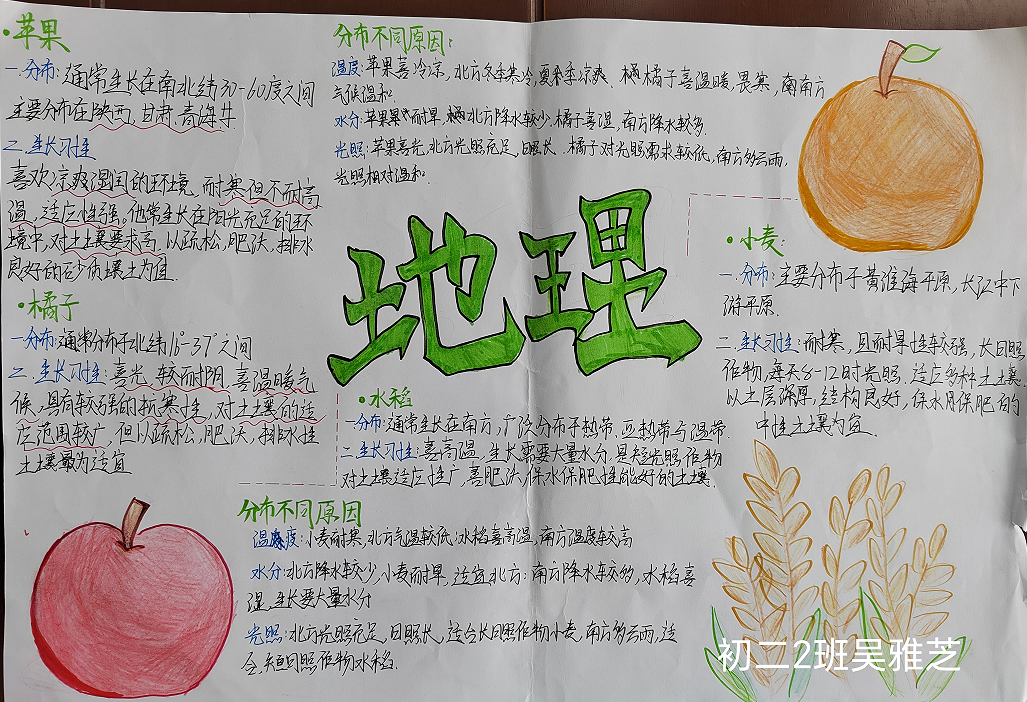 ·苹果
一.分布:通常生长在南北纬30-60度之间
主要分布在陕西,甘肃.青海等
二.生长习性
喜欢凉爽湿国的环境,耐寒但不耐高
温,适应性强。他常生长在阳光充足的环
境中,对土壤要求高.以疏松,肥沃,排水
良好的砂质壤土为宜.
·橘子
一分布:通常分布于北纬16°-37°之间
二.生长习性:喜光,较耐阴,喜温暖气
候,具有较强的抗寒性,对土壤的适
应范围较广,但以疏松,肥沃,排水性
土壤最为适宜
分布不同原因:
温度:苹果喜冷凉,北方冬季寒冷,夏季凉爽.橘子喜温暖,畏寒,南方
气候温和
水分:苹果耐旱,北方降水较少.橘子喜湿,南方降水较多.
光照:苹果喜光,北方光照充足,日照长.橘子对光照需求较低,南方多云雨,
光照相对温和.
地理
·小麦:
一.分布:主要分布于黄淮海平原,长江中下
游平原.
二.生长习性:耐寒,且耐旱性较强,长日照
作物,每天8-12时光照.适应多种土壤.
以土层深厚,结构良好,保水月保肥的
中性土壤为宜.
·水稻
一分布:通常生长在南方,广泛分布于热带.亚热带与温带.
二.生长习性:喜高温,生长需要大量水分.是短光照作物
对土壤适应性广,喜肥沃,保水保肥性能好的土壤.
分布不同原因
温度:小麦耐寒,北方气温较低.水稻喜高温,南方温度较高
水分:北方降水较少,小麦耐旱,适宜北方:南方降水较多,水稻喜
湿,生长要大量水分
光照:北方光照充足,日照长,适合长日照作物小麦,南方多云雨,适
合短日照作物水稻.
初二2班吴雅芝